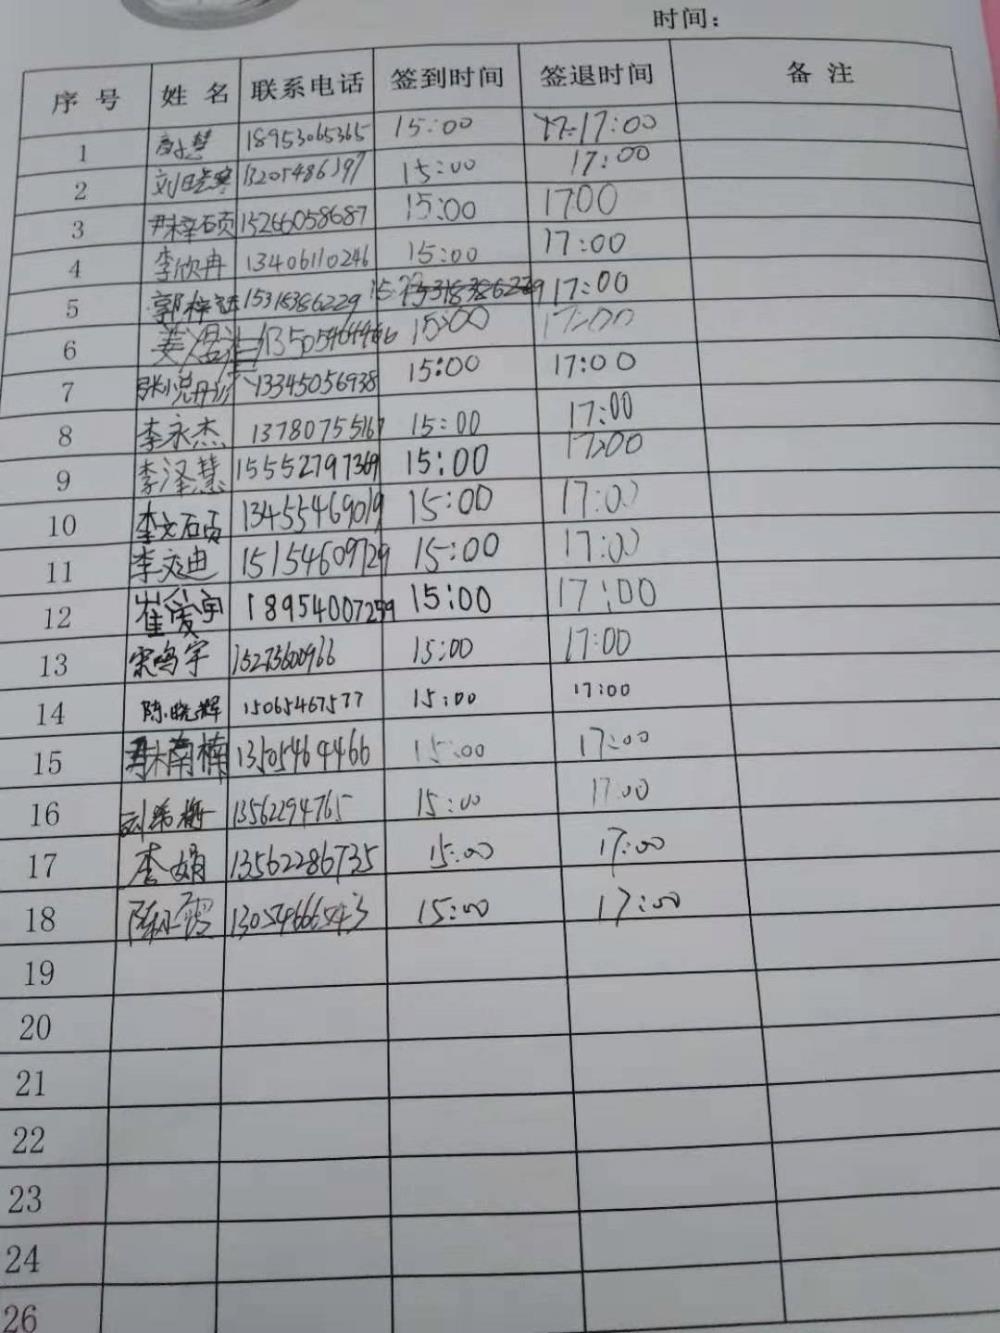 时间：
序 号 姓 名 联系电话 签到时间 签退时间 备 注
1 慧 18953065365 15:00 17:00
2 刘 13205486197 15:00 17:00
3 尹梓硕 15266058687 15:00 1700
4 李欣冉 13406110246 15:00 17:00
5 郭梓 15318386229 17:00
6 姜 13505464466 15:00 17:00
7 张 13345056938 15:00 17:00
8 李永杰 13780755167 15:00 17:00
9 李泽慧 15552797369 15:00 17:00
10 李文硕 13455469019 15:00 17:00
11 李文迪 15154609729 15:00 17:00
12 崔爱宇 18954007259 15:00 17:00
13 宋鸣宇 15275600966 15:00 17:00
14 陈晓辉 15065467577 15:00 17:00
15 楠 13505464466 15:00 17:00
16 刘希梅 13562294765 15:00 17:00
17 李娟 13562286735 15:00 17:00
18 陈 15:00 17:00
19
20
21
22
23
24
26